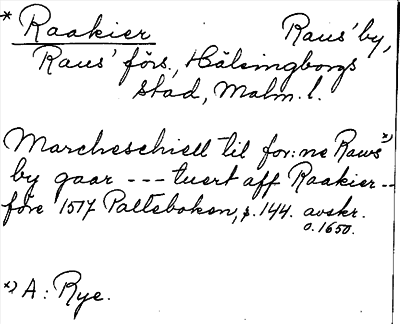 * Raakier Raus' by,
Raus' förs., Hälsingborgs
stad, Malm. l.
Marcheschiell til for: ne Raws x)
by gaar --- tuert aff Raakier --
före 1517 Palteboken, s. 144. avskr.
o. 1650.
x) A: Rye.